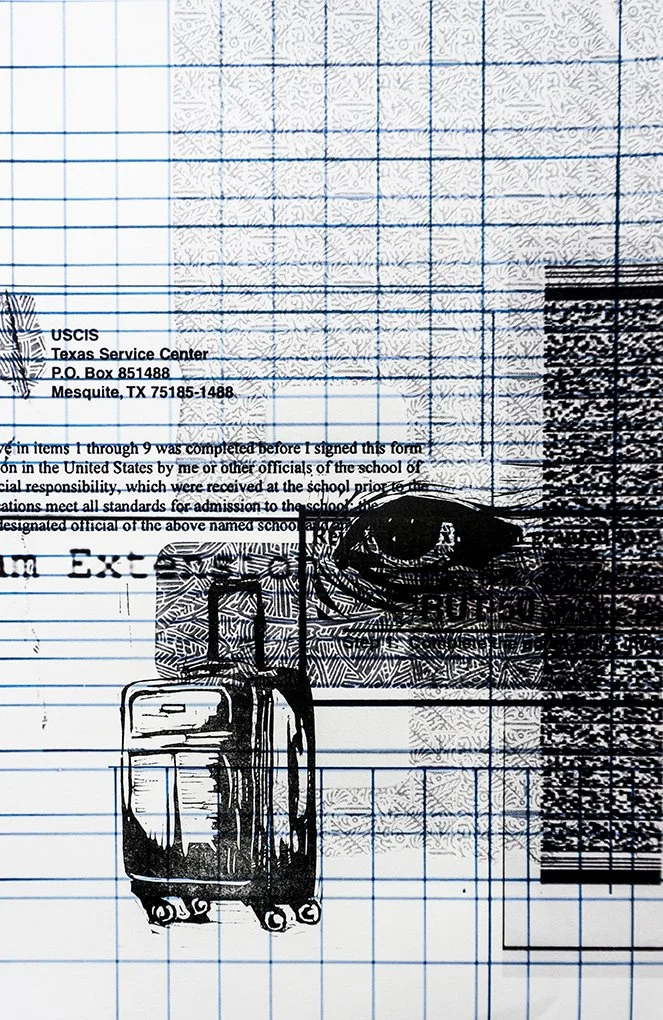 USCIS
Texas Service Center
P.O. Box 851488
Mesquite, TX 75185-1488
in items 1 through 9 was completed before I signed this form
on in the United States by me or other officials of the school of
cial responsibility, which were received at the school prior to the
ations meet all standards for admission to the school; the
designated official of the above named school and
um Extension
granted